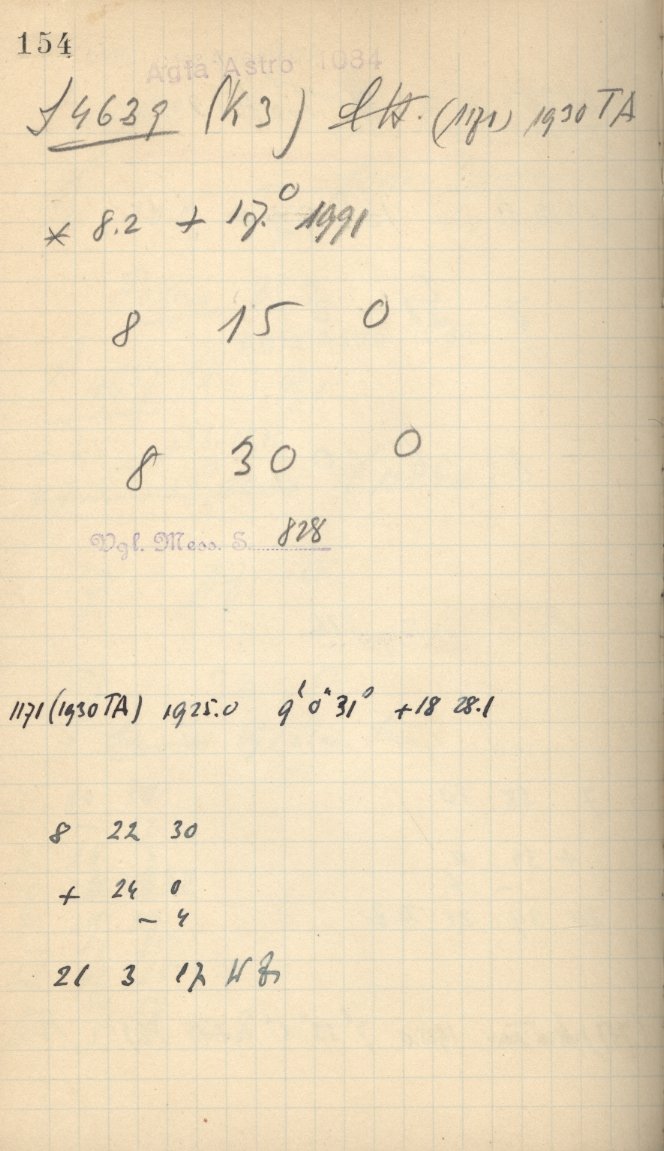 154
Agfa Astro 1084
J 4639 (K3) (1171) 1930 TA
* 8.2 + 17.° 1991
8 15 0
8 30 0
Vgl. Mess. S. 828
1171 (1930 TA) 1925.0 9 0 31 +18 28.1
8 22 30
+ 24 0
– 4
21 3 17